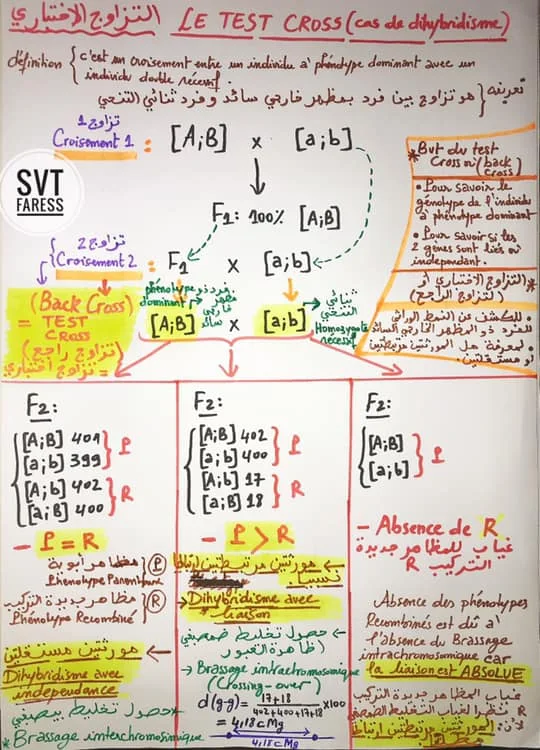 التزاوج الإختباري LE TEST CROSS (cas de dihybridisme)
définition { c'est un croisement entre un individu à phénotype dominant avec un
individu double récessif.
تعريفه { هو تزاوج بين فرد بمظهر خارجي سائد وفرد ثنائي التنحي
تزاوج 1
Croisement 1 : [A;B] x [a;b]
SVT
FARESS
F1: 100% [A;B]
تزاوج 2
Croisement 2 : F1 x [a;b]
(Back Cross)
= TEST
CROSS
(تزاوج راجع)
= تزاوج اختباري
phénotype
dominant
فرد ذو
مظهر
خارجي
سائد
[A;B] x [a;b]
ثنائي
التنحي
Homozygote
récessif
* But du test
Cross ou (back
cross)
• Pour savoir le
génotype de l'individu
à phénotype dominant
• Pour savoir si les
2 gènes sont liés ou
independant.
* التزاوج الاختباري أو
(التزاوج الراجع)
• للكشف عن النمط الوراثي
للفرد ذو المظهر الخارجي السائد
• لمعرفة هل المورثتين مرتبطتين
أو مستقلتين.
F2:
[A;B] 401
[a;b] 399 } P
[A;b] 402
[a;B] 400 } R
- P = R
مظاهر أبوية (P)
Phénotype Parentaux
مظاهر جديدة التركيب (R)
Phénotype Recombiné
← مورثتين مستقلتين
Dihybridisme avec
independance
* حصول تخليط بيصبغي
* Brassage interchromosomique
F2:
[A;B] 402
[a;b] 400 } P
[A;b] 17
[a;B] 18 } R
- P > R
← مورثتين مرتبطتين ارتباطا
نسبيا
→ Dihybridisme avec
liaison
← حصول تخليط ضمصبغي
(ظاهرة العبور)
→ Brassage intrachromosomique
(Crossing-over)
d(g-g) = 17+18 / 402+400+17+18 x100
= 4,18 cMg
4,18 cMg
F2:
[A;B]
[a;b] } P
- Absence de R
غياب للمظاهر جديدة
التركيب R
Absence des phénotypes
Recombinés est dû à
l'absence du Brassage
intrachromosomique car
la liaison est ABSOLUE
غياب المظاهر جديدة التركيب
R نظرا لغياب التخليط الضمصبغي
لأن المورثتين مرتبطتين ارتباطا